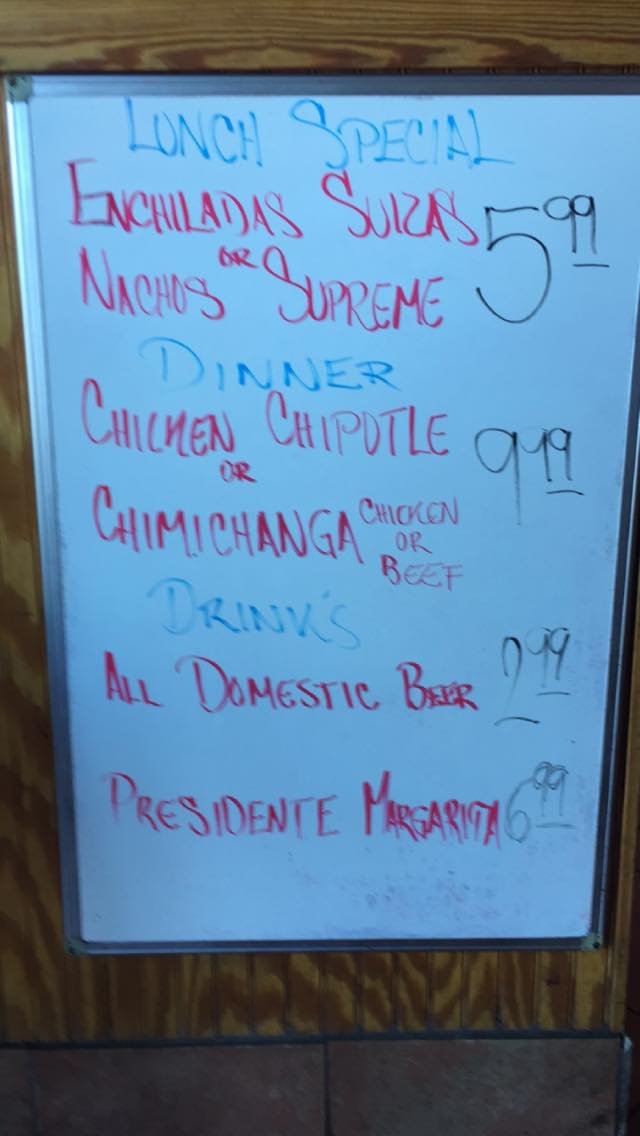 LUNCH SPECIAL
ENCHILADAS SUIZAS 5.99
OR
NACHOS SUPREME
DINNER
CHICKEN CHIPOTLE 9.99
OR
CHIMICHANGA CHICKEN
OR
BEEF
DRINK'S
ALL DOMESTIC BEER 2.99
PRESIDENTE MARGARITA 6.99